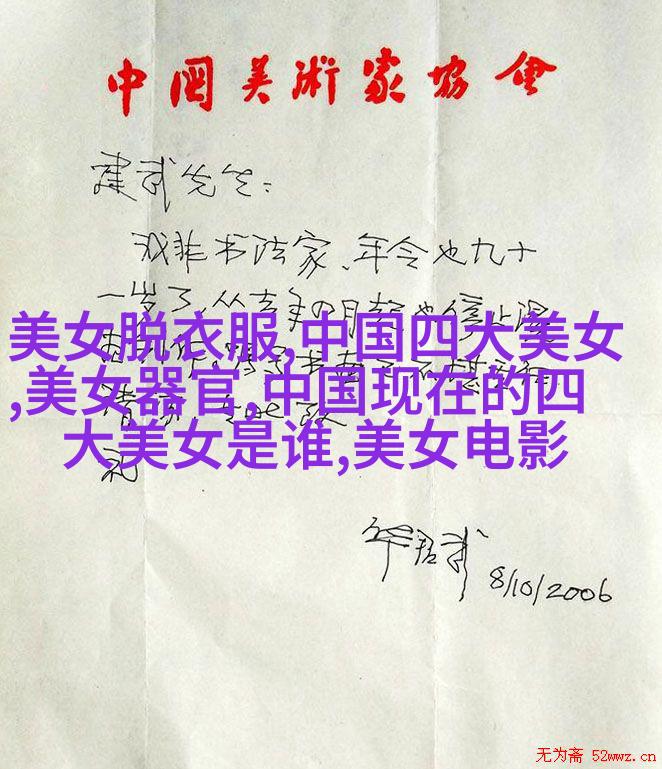 中国美術家协会
建武先生:
我非书法家、年令也九十
一岁了,从去年四月起也停止漫
美女脱衣服,中国四大美女
,美女器官,中国现在的四
大美女是谁,美女电影
礼
华君武
8/10/2006
无为斋 52wwz.cn